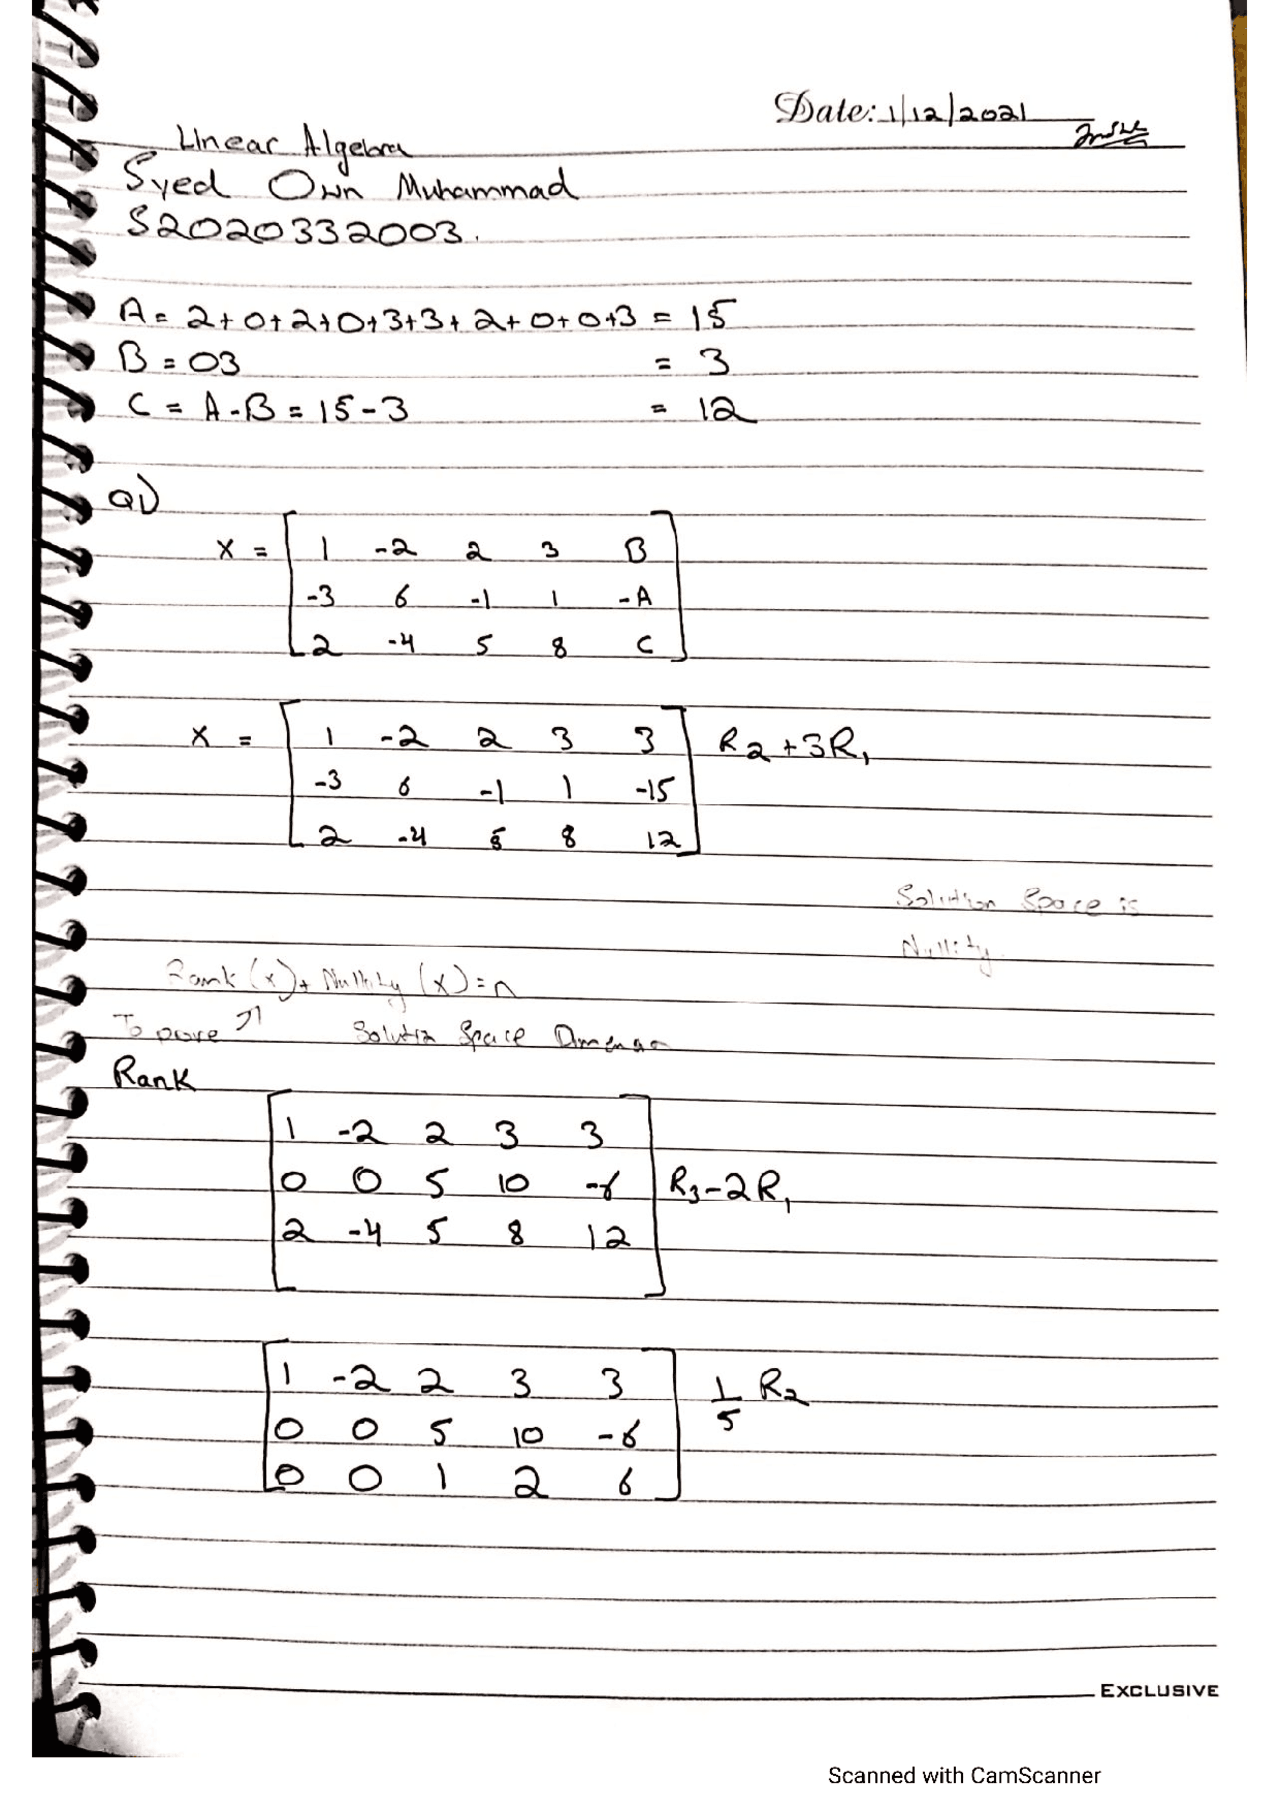 Date: 1/12/2021
Linear Algebra
Syed Own Muhammad
S2020332003.
A = 2+0+2+0+3+3+2+0+0+3 = 15
B = 03 = 3
C = A-B = 15-3 = 12
Q1)
X = [ 1 -2 2 3 B
-3 6 -1 1 -A
2 -4 5 8 C ]
X = [ 1 -2 2 3 3 ] R2 +3R1
-3 6 -1 1 -15
2 -4 5 8 12 ]
Solution Space is
Nullity.
Rank (x)+ Nullity (x)=n
To prove ↗ Space
Rank
[ 1 -2 2 3 3
0 0 5 10 -6 ] R3-2R1
2 -4 5 8 12
[ 1 -2 2 3 3 ] 1/5 R2
0 0 5 10 -6
0 0 1 2 6 ]
EXCLUSIVE
Scanned with CamScanner